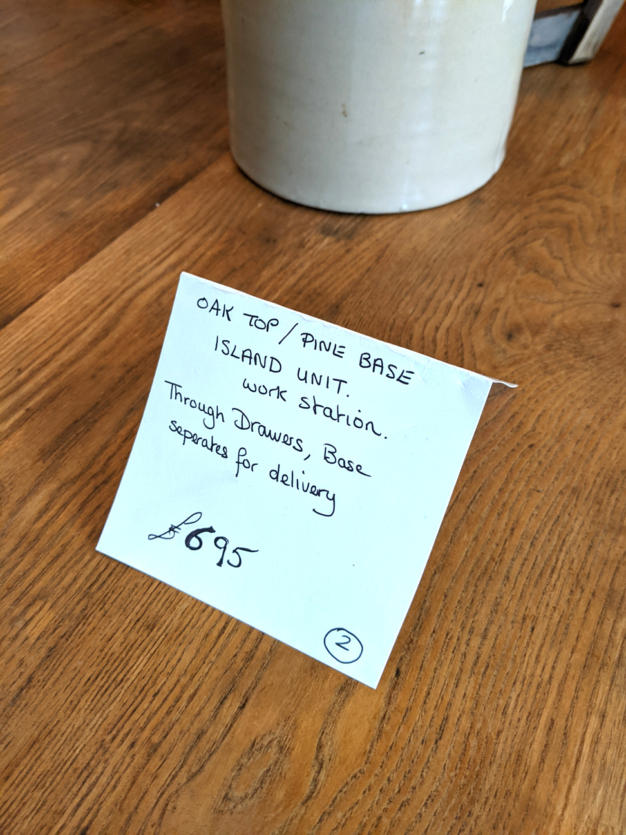 OAK TOP / PINE BASE
ISLAND UNIT.
work station.
Through Drawers, Base
seperates for delivery
£695
2